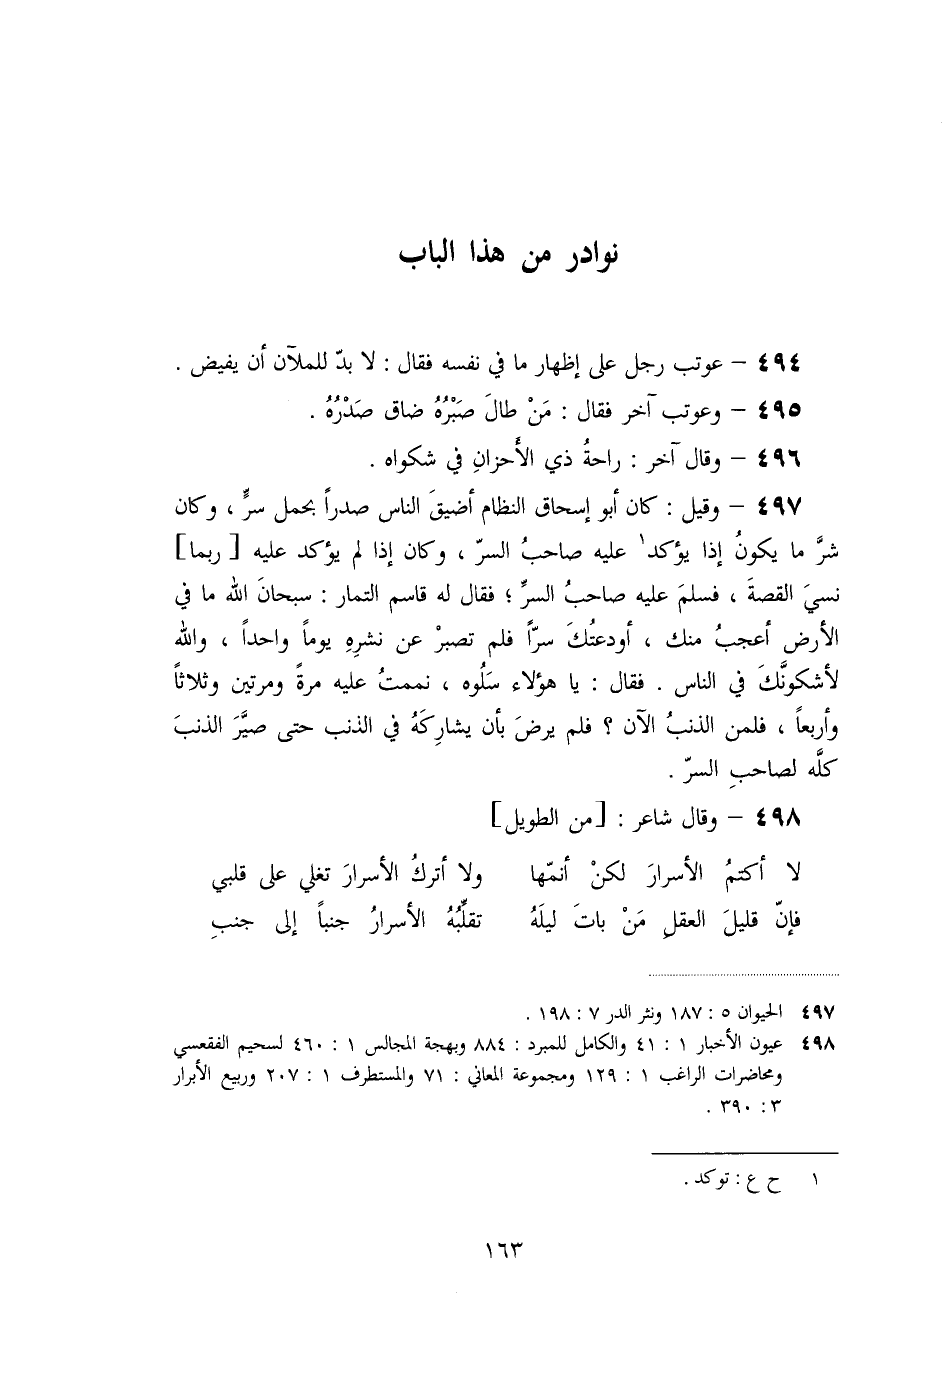 نوادر من هذا الباب
٤٩٤ – عوتب رجل على إظهار ما في نفسه فقال : لا بدّ للملآن أن يفيض .
٤٩٥ – وعوتب آخر فقال : مَنْ طالَ صَبْرُهُ ضاق صَدْرُهُ .
٤٩٦ – وقال آخر : راحةُ ذي الأَحزانِ في شكواه .
٤٩٧ – وقيل : كان أبو إسحاق النظام أضيقَ الناس صدراً بحمل سرٍّ ، وكان
شرَّ ما يكونُ إذا يؤكد١ عليه صاحبُ السرّ ، وكان إذا لم يؤكد عليه [ ربما ]
نسيَ القصةَ ، فسلمَ عليه صاحبُ السرِّ ؛ فقال له قاسم التمار : سبحانَ الله ما في
الأرض أعجبُ منك ، أودعتُكَ سرّاً فلم تصبرْ عن نشرِهِ يوماً واحداً ، والله
لأشكونَّكَ في الناس . فقال : يا هؤلاء سَلُوه ، نممتُ عليه مرةً ومرتين وثلاثاً
وأربعاً ، فلمن الذنبُ الآن ؟ فلم يرضَ بأن يشاركَهُ في الذنب حتى صيَّرَ الذنبَ
كلَّه لصاحبِ السرّ .
٤٩٨ – وقال شاعر : [من الطويل]
لا أكتمُ الأسرارَ لكنْ أنمّها ولا أتركُ الأسرارَ تغلي على قلبي
فإنّ قليلَ العقلِ مَنْ باتَ ليلَهُ تقلِّبُهُ الأسرارُ جنباً إلى جنبِ
٤٩٧ الحيوان ٥ : ١٨٧ ونثر الدر ٧ : ١٩٨ .
٤٩٨ عيون الأخبار ١ : ٤١ والكامل للمبرد : ٨٨٤ وبهجة المجالس ١ : ٤٦٠ لسحيم الفقعسي
ومحاضرات الراغب ١ : ١٢٩ ومجموعة المعاني : ٧١ والمستطرف ١ : ٢٠٧ وربيع الأبرار
٣ : ٣٩٠ .
١ ح ع : توكد .
١٦٣